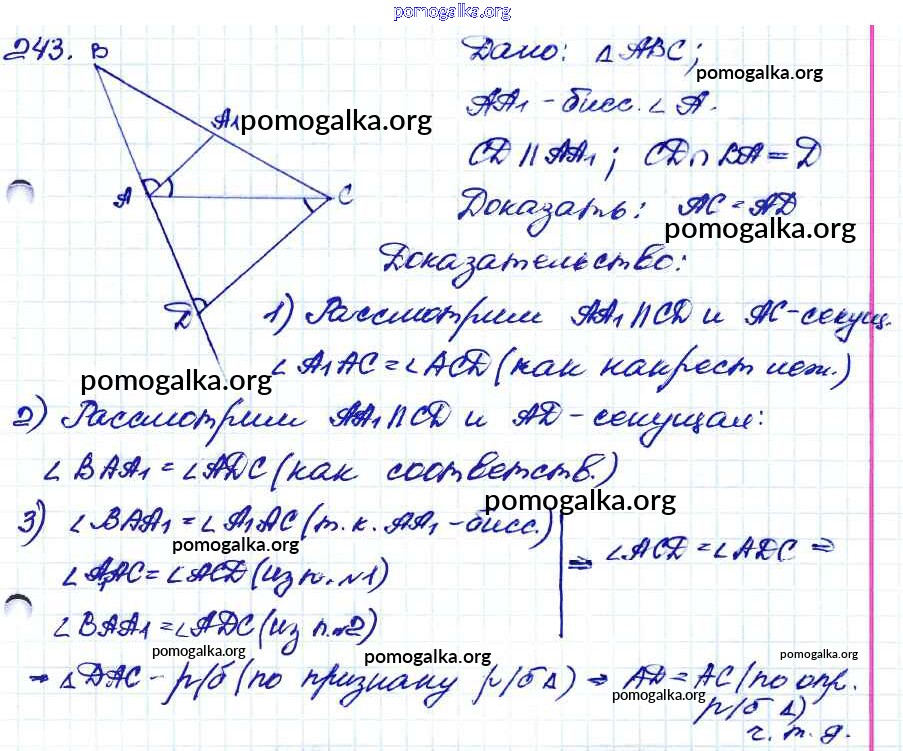 pomogalka.org
243. B
Дано: △ABC;
pomogalka.org
AA₁ - бисс. ∠A.
A₁ pomogalka.org
CD ∥ AA₁; CD ∩ BA = D
A C
Доказать: AC = AD
pomogalka.org
Доказательство:
D
1) Рассмотрим AA₁ ∥ CD и AC - секущ.
∠A₁AC = ∠ACD (как накрест леж.)
pomogalka.org
2) Рассмотрим AA₁ ∥ CD и AD - секущая:
∠BAA₁ = ∠ADC (как соответств.)
pomogalka.org
3) ∠BAA₁ = ∠A₁AC (т.к. AA₁ - бисс.)
pomogalka.org
⇒ ∠ACD = ∠ADC ⇒
∠A₁AC = ∠ACD (из п. №1)
∠BAA₁ = ∠ADC (из п. №2)
pomogalka.org
pomogalka.org
pomogalka.org
⇒ △DAC - р/б (по признаку р/б △) ⇒ AD = AC (по опр.
pomogalka.org
р/б △)
ч.т.д.